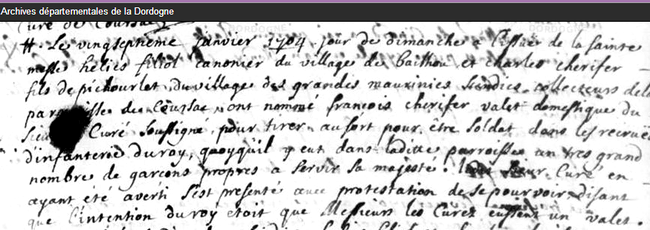 Archives départementales de la Dordogne
Curé de Coursac
Le vingtseptieme janvier 1704 jour de dimanche a l'issüe de la sainte
messe helies fillol canonier du village de bachou et charles cherifer
fils de pichourlet du village des grandes maurinies scindics collecteurs de la
parroisse de Coursac ont nommé francois cherifer valet domestique du
Sieur Curé soussigné pour tirer au sort pour être soldat dans les recrües
d'infanterie du roy, quoyquil y eut dans ladite parroisse un tres grand
nombre de garcons propres a servir sa majesté. Sieur Curé en
ayant été averti s'est presenté avec protestation de se pourvoir disant
que l'intention du roy etoit que Messieurs les Curez eussent un valet.